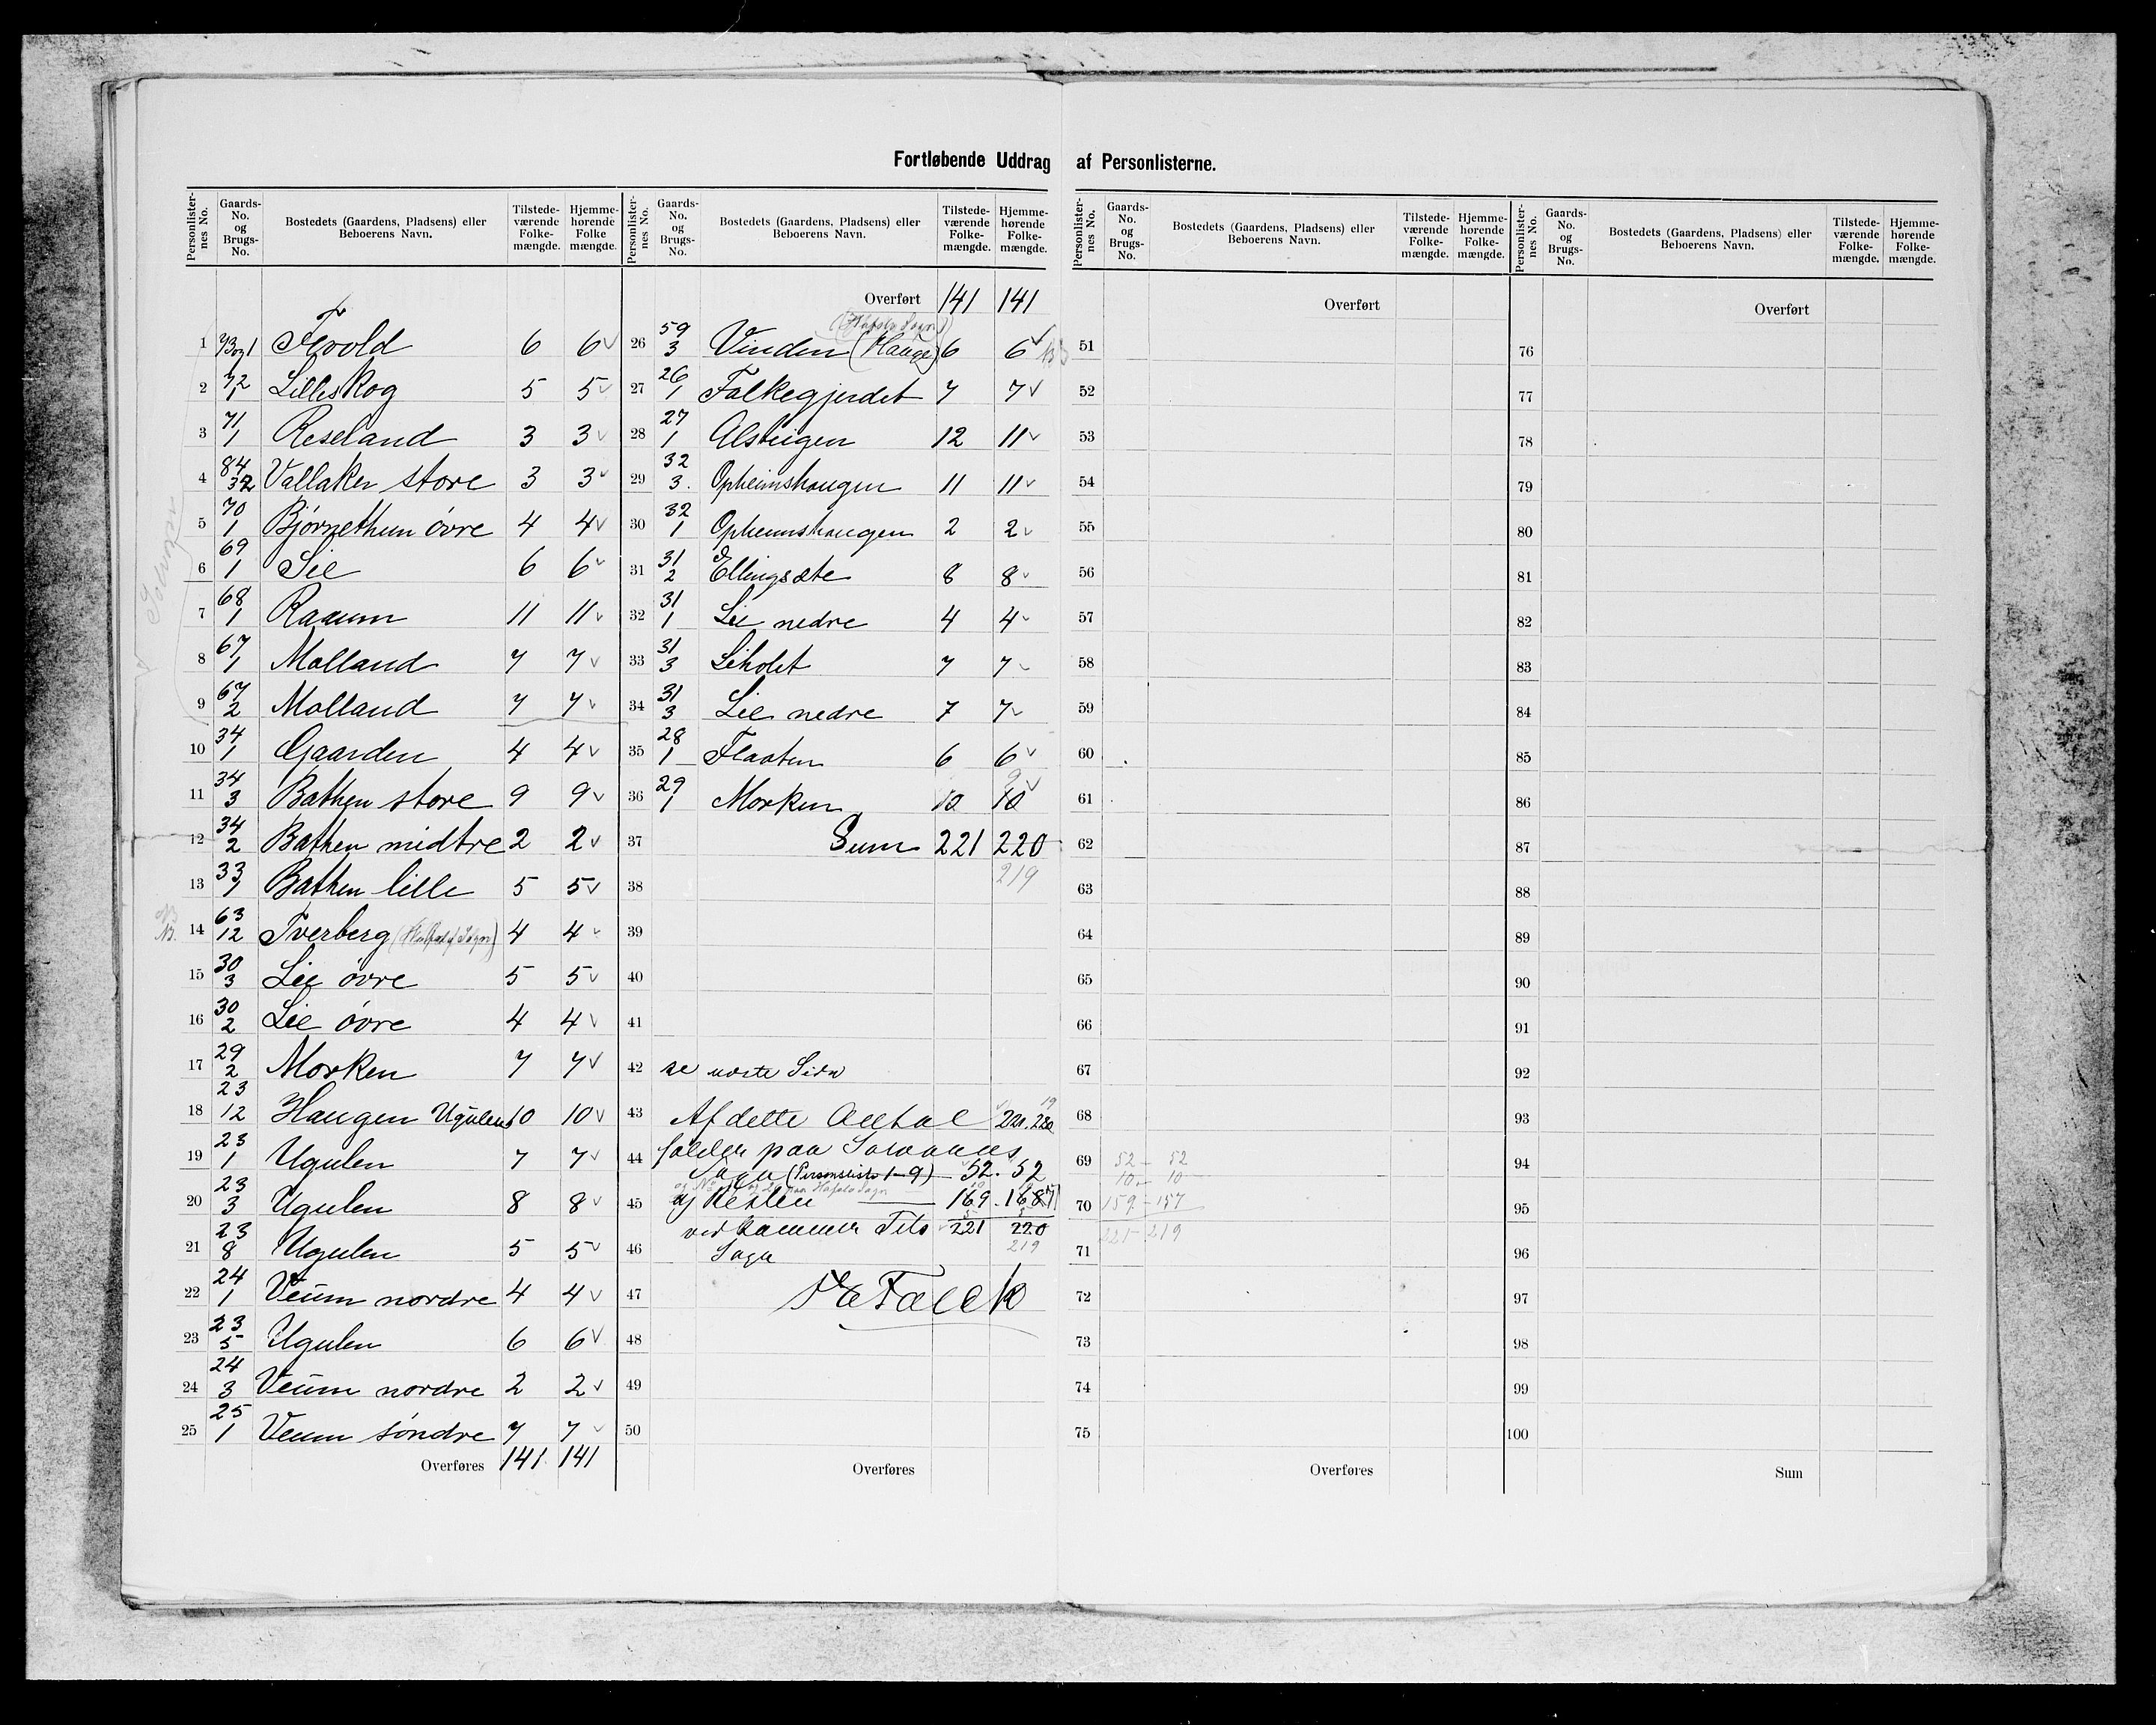 Fortløbende Uddrag af Personlisterne.
Personlister-nes No. Gaards-No. og Brugs-No. Bostedets (Gaardens, Pladsens) eller Beboerens Navn. Tilstede-værende Folke-mængde. Hjemme-hørende Folke mængde.
1 Tvold 6 6
2 72 1 Lilleskog 5 5
3 71 1 Reseland 3 3
4 84 Vallaker store 3 3
5 70 1 Bjørnethun óvre 4 4
6 69 1 Lie 6 6
7 68 1 Raaum 11 11
8 67 1 Molland 7 7
9 67 2 Molland 7 7
10 34 1 Gaarden 4 4
11 34 3 Bathen store 9 9
12 34 2 Bathen midtre 2 2
13 33 1 Bathen lille 5 5
14 63 12 Tverberg 4 4
15 30 3 Lie óvre 5 5
16 30 2 Lie óvre 4 4
17 29 2 Morken 7 7
18 23 12 Haugen Ugulen 10 10
19 23 1 Ugulen 7 7
20 23 3 Ugulen 8 8
21 23 8 Ugulen 5 5
22 24 1 Veum nordre 4 4
23 23 5 Ugulen 6 6
24 24 3 Veum nordre 2 2
25 25 1 Veum sóndre 7 7
Overføres 141 141
Personlister-nes No. Gaards-No. og Brugs-No. Bostedets (Gaardens, Pladsens) eller Beboerens Navn. Tilstede-værende Folke-mængde. Hjemme-hørende Folke-mængde.
Overført 141 141
(Hafslo Sogn)
26 59 3 Vinden (Hauge) 6 6
27 26 1 Falkegjerdet 7 7
28 27 1 Alsteigen 12 11
29 32 3 Opheimshaugen 11 11
30 32 1 Opheimshaugen 2 2
31 31 2 Ellingsæte 8 8
32 31 1 Lie nedre 4 4
33 31 3 Liholet 7 7
34 31 3 Lie nedre 7 7
35 28 1 Flaaten 6 6
36 29 1 Morken 10 10
37 Sum 221 220
38 219
39
40
41
42 se næste Side
43 Af dette Antal
44 falder paa
Sogn (Personliste 1-9) 52. 52
45 169.
ved kommer 221 220
46 Sogn 219
47 Falck
48
49
50
Overføres
Personlister-nes No. Gaards-No. og Brugs-No. Bostedets (Gaardens, Pladsens) eller Beboerens Navn. Tilstede-værende Folke-mængde. Hjemme-hørende Folke-mængde.
Overført
51
52
53
54
55
56
57
58
59
60
61
62
63
64
65
66
67
68
69 52 – 52
10 – 10
70 159 – 157
71 221 219
72
73
74
75
Overføres
Personlister-nes No. Gaards-No. og Brugs-No. Bostedets (Gaardens, Pladsens) eller Beboerens Navn. Tilstede-værende Folke-mængde. Hjemme-hørende Folke-mængde.
Overført
76
77
78
79
80
81
82
83
84
85
86
87
88
89
90
91
92
93
94
95
96
97
98
99
100
Sum